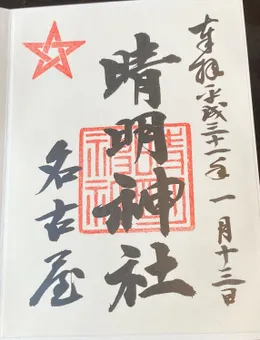 奉拝 平成三十一年 一月十三日
晴明神社
名古屋